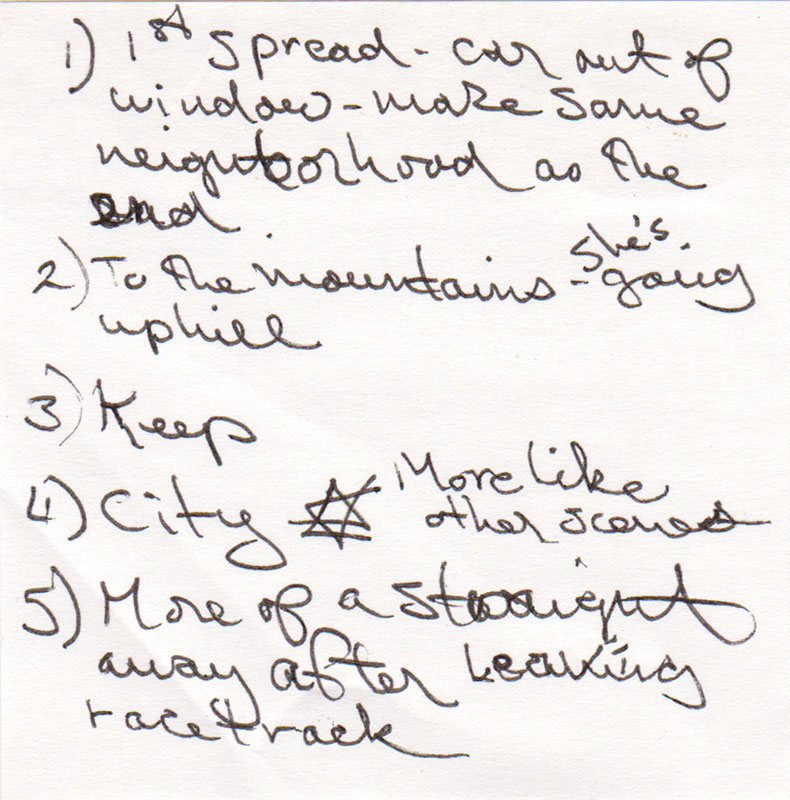 1) 1st spread - car out of
window - make same
neighborhood as the
end.
2) To the mountains - she's going
uphill
3) Keep
4) City More like
other scenes
5) More of a straight
away after leaving
racetrack